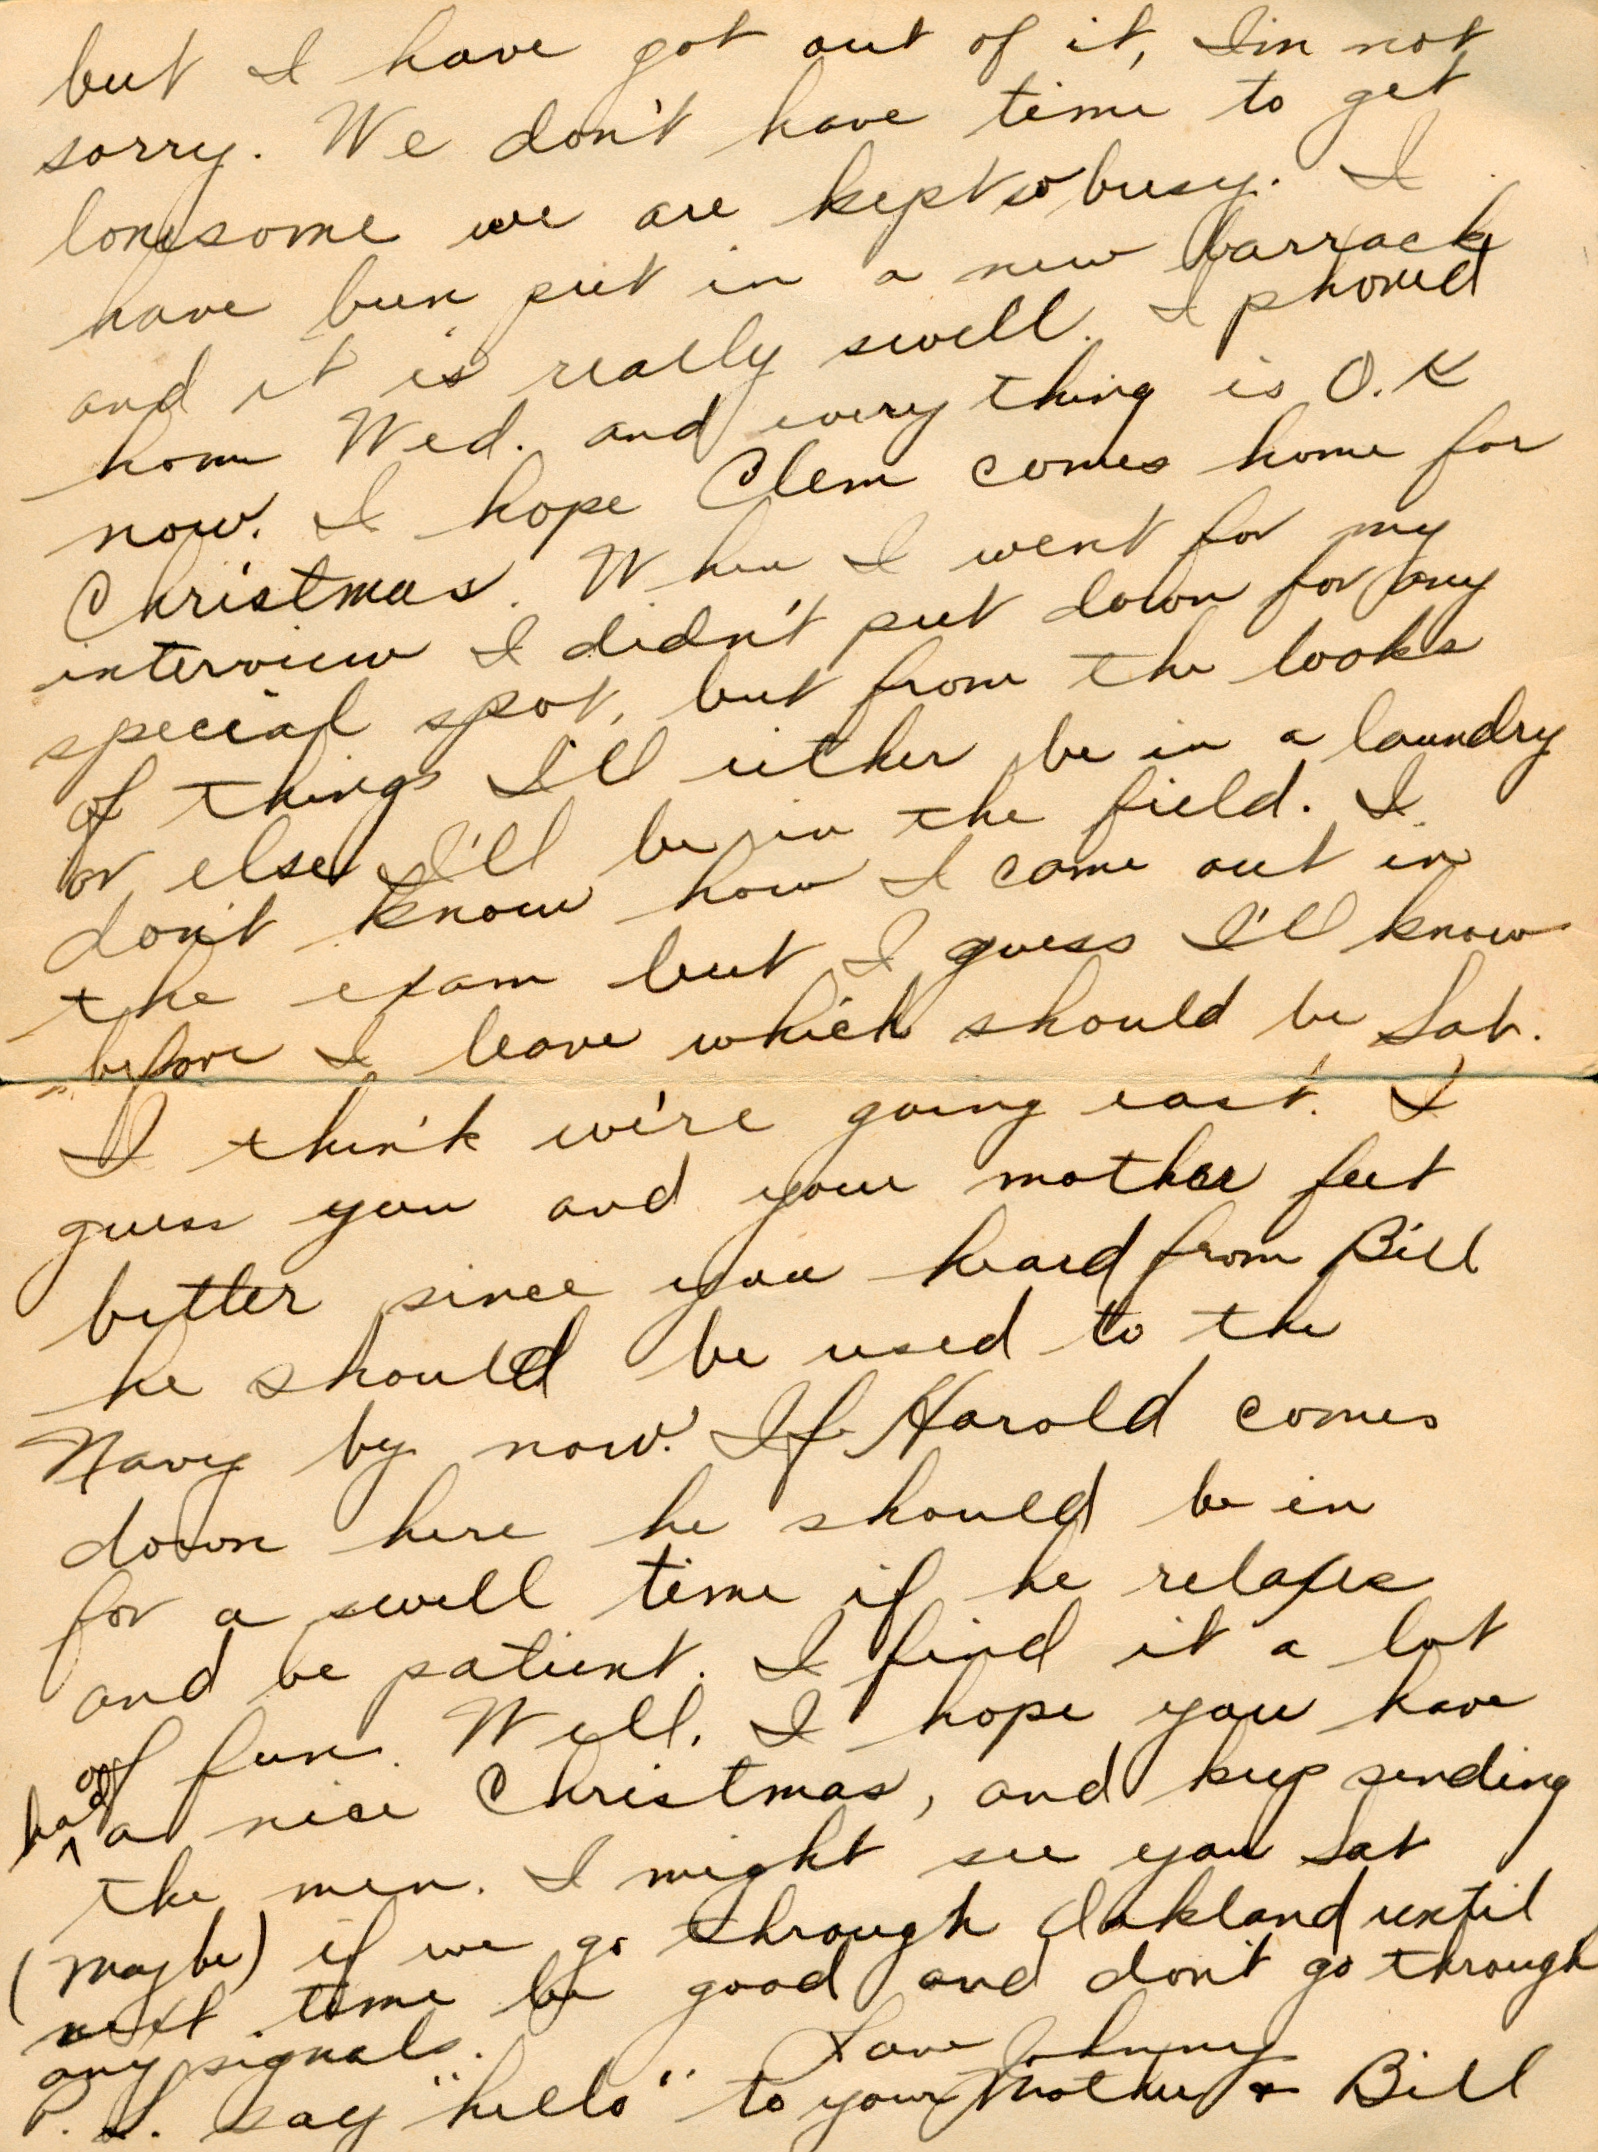 but I have got out of it, I'm not
sorry. We don't have time to get
lonesome we are kept so busy. I
have been put in a new barrack
and it is really swell. I phoned
home Wed. and every thing is O.K
now. I hope Clem comes home for
Christmas. When I went for my
interview I didn't put down for any
special spot, but from the looks
of things I'll either be in a laundry
or else I'll be in the field. I
don't know how I came out in
the exam but I guess I'll know
before I leave which should be Sat.
I think we're going east. I
guess you and your mother feet
better since you heard from Bill
he should be used to the
Navy by now. If Harold comes
down here he should be in
for a swell time if he relaxes
and be patient. I find it a lot
of fun. Well, I hope you have
had a nice Christmas, and keep sending
the men. I might see you Sat
(maybe) if we go through Oakland until
next time be good and don't go through
any signals. Love Johnny
P.S. say "hello" to your Mother & Bill